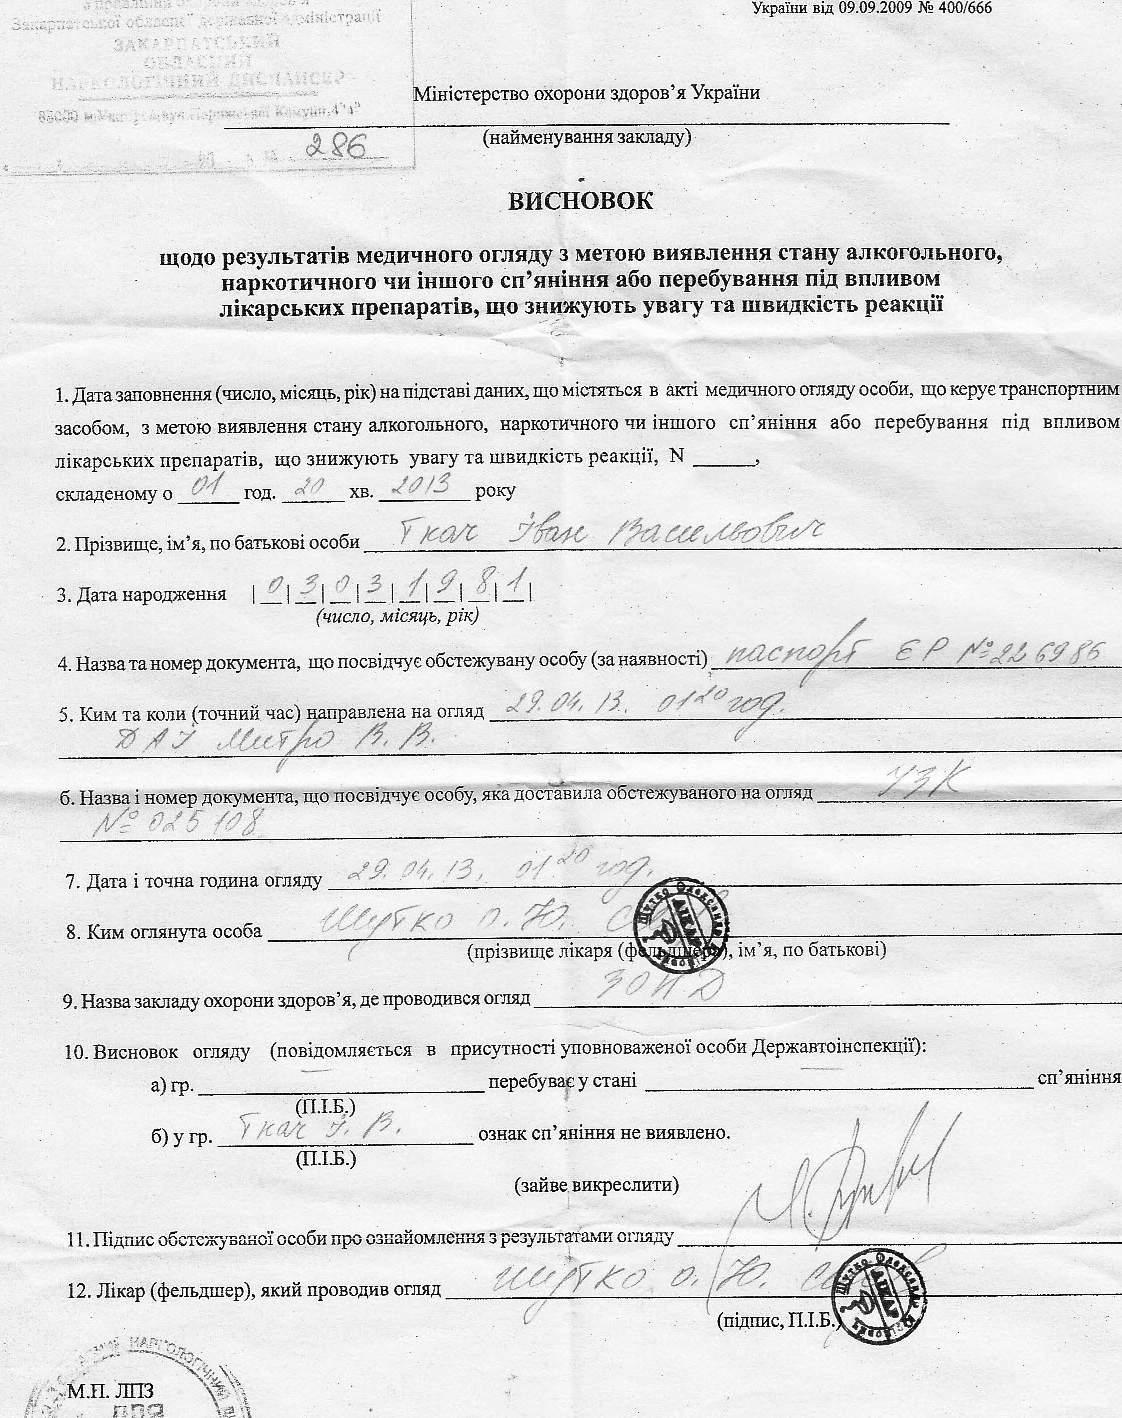 України від 09.09.2009 № 400/666
Закарпатської обласної державної адміністрації
ЗАКАРПАТСЬКИЙ
ОБЛАСНИЙ
НАРКОЛОГІЧНИЙ ДИСПАНСЕР
286
Міністерство охорони здоров’я України
(найменування закладу)
ВИСНОВОК
щодо результатів медичного огляду з метою виявлення стану алкогольного,
наркотичного чи іншого сп’яніння або перебування під впливом
лікарських препаратів, що знижують увагу та швидкість реакції
1. Дата заповнення (число, місяць, рік) на підставі даних, що містяться в акті медичного огляду особи, що керує транспортним
засобом, з метою виявлення стану алкогольного, наркотичного чи іншого сп’яніння або перебування під впливом
лікарських препаратів, що знижують увагу та швидкість реакції, N ______,
складеному о 01 год. 20 хв. 2013 року
2. Прізвище, ім’я, по батькові особи Ткач Іван Васильович
3. Дата народження |0|3|0|3|1|9|8|1|
(число, місяць, рік)
4. Назва та номер документа, що посвідчує обстежувану особу (за наявності) паспорт ЄР №226986
5. Ким та коли (точний час) направлена на огляд 29.04.13. 01 20 год.
ДАІ Митро В. В.
6. Назва і номер документа, що посвідчує особу, яка доставила обстежуваного на огляд УЗК
№ 025108
7. Дата і точна година огляду 29.04.13. 01 20 год.
8. Ким оглянута особа Шутко О. Ю.
(прізвище лікаря (фельдшера), ім’я, по батькові)
9. Назва закладу охорони здоров’я, де проводився огляд ЗОНД
10. Висновок огляду (повідомляється в присутності уповноваженої особи Державтоінспекції):
а) гр. ______ перебуває у стані ______ сп’яніння
(П.І.Б.)
б) у гр. Ткач І. В. ознак сп’яніння не виявлено.
(П.І.Б.)
(зайве викреслити)
11. Підпис обстежуваної особи про ознайомлення з результатами огляду
12. Лікар (фельдшер), який проводив огляд Шутко О. Ю.
Шутко Олександр ЛІКАР
(підпис, П.І.Б.)
НАРКОЛОГІЧНИЙ
М.П. ЛПЗ
ДЛЯ